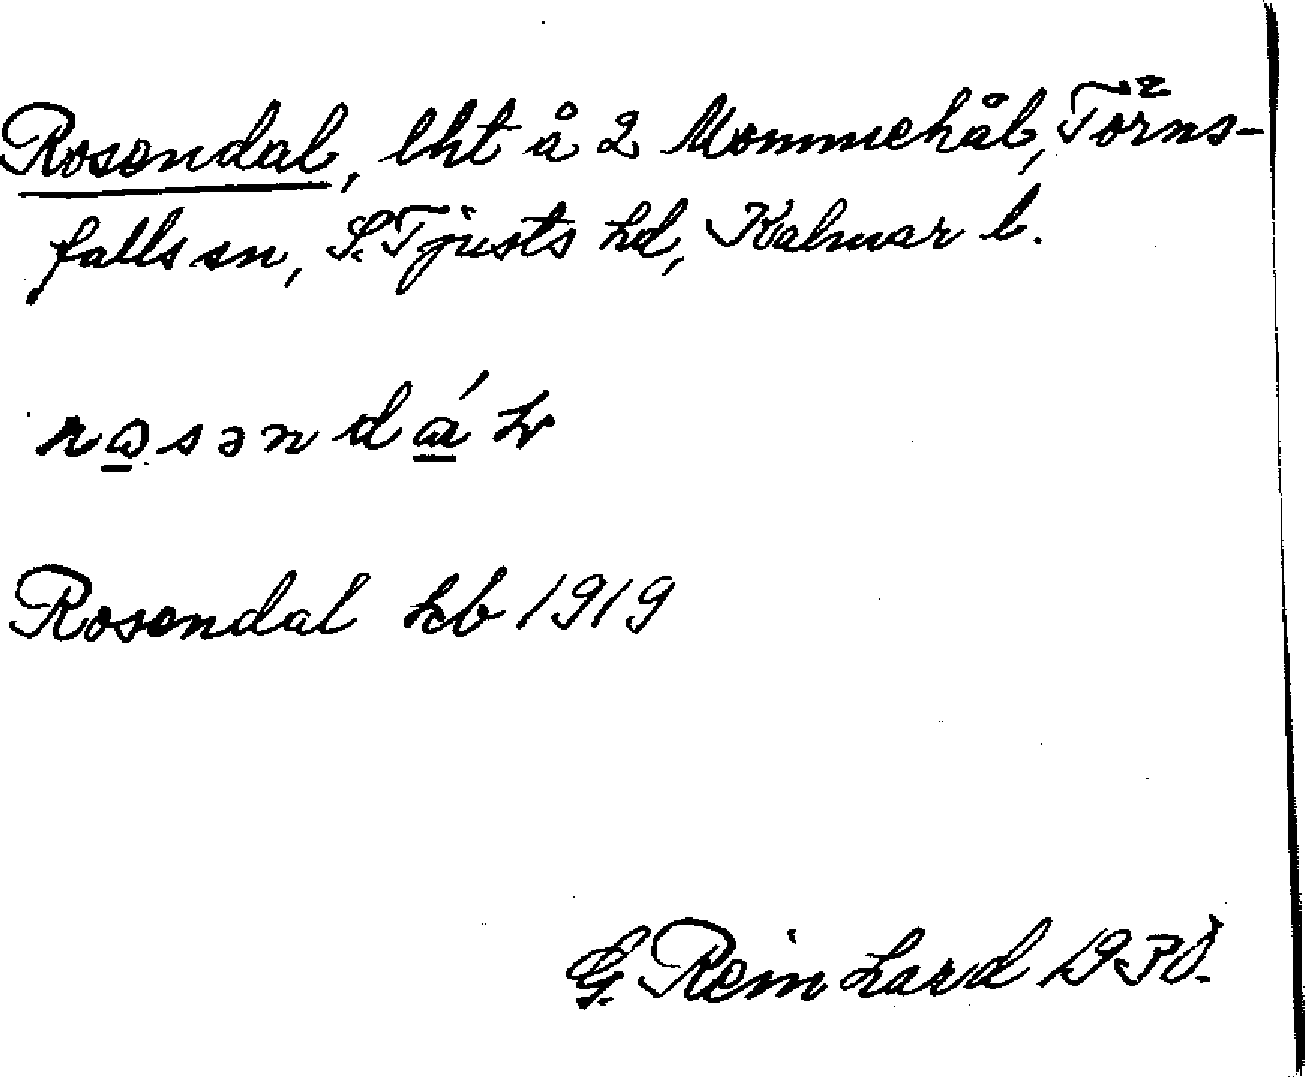 Rosendal, lht å 2 Mommehål, Törns-
falls sn, S. Tjusts hd, Kalmar l.
Rosendal hb 1919
G. Reinhard